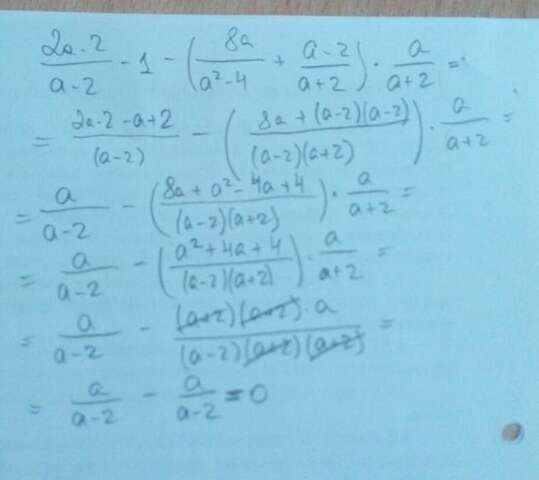 (2a-2)/(a-2) - 1 - (8a/(a²-4) + (a-2)/(a+2)) · a/(a+2) =
= (2a-2-a+2)/(a-2) - ((8a+(a-2)(a-2))/((a-2)(a+2))) · a/(a+2) =
= a/(a-2) - ((8a+a²-4a+4)/((a-2)(a+2))) · a/(a+2) =
= a/(a-2) - ((a²+4a+4)/((a-2)(a+2))) · a/(a+2) =
= a/(a-2) - ((a+2)(a+2)·a)/((a-2)(a+2)(a+2)) =
= a/(a-2) - a/(a-2) = 0